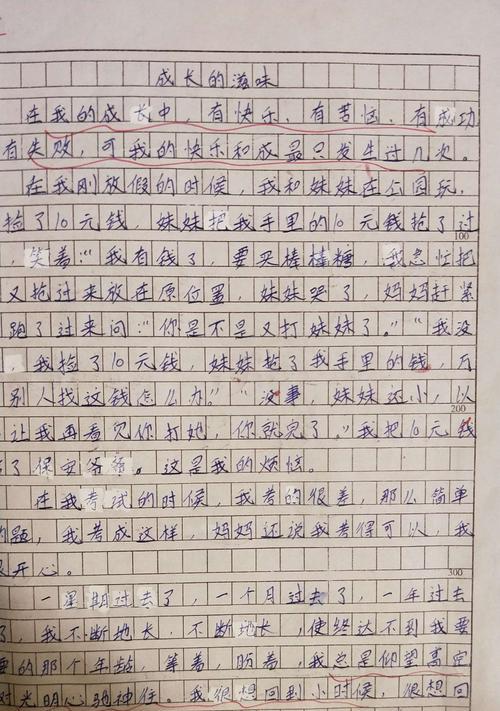 成长的滋味
在我的成长中，有快乐、有苦恼、有成功
有失败，可我的快乐和成最只发生过几次。
在我刚放假的时候，我和妹妹在公园玩，
捡了10元钱，妹妹把我手里的10元钱抢了过
100
，笑着："我有钱了，要买棒棒糖，我急忙把
又抢过来放在原位置，妹妹哭了，妈妈赶紧
跑了过来问："你是不是又打妹妹了。""我没
，我捡了10元钱，妹妹抢了我手里的钱，万
别人找这钱怎么办。""没事，妹妹还小，以
200
让我再看见你打她，你就完了。"我把10元钱
了保安爷爷。这是我的烦恼。
在我考试的时候，我考的很差，那么简单
的题，我考成这样，妈妈还说我考得可以，我
开心。
300
一星期过去了，一个月过去了，一年过去
了，我不断地长，不断地长，使终达不到我要
要的那个年龄，等着，盼着，我总是仰望高空
对光明心驰神往。我很想回到小时候，很想回